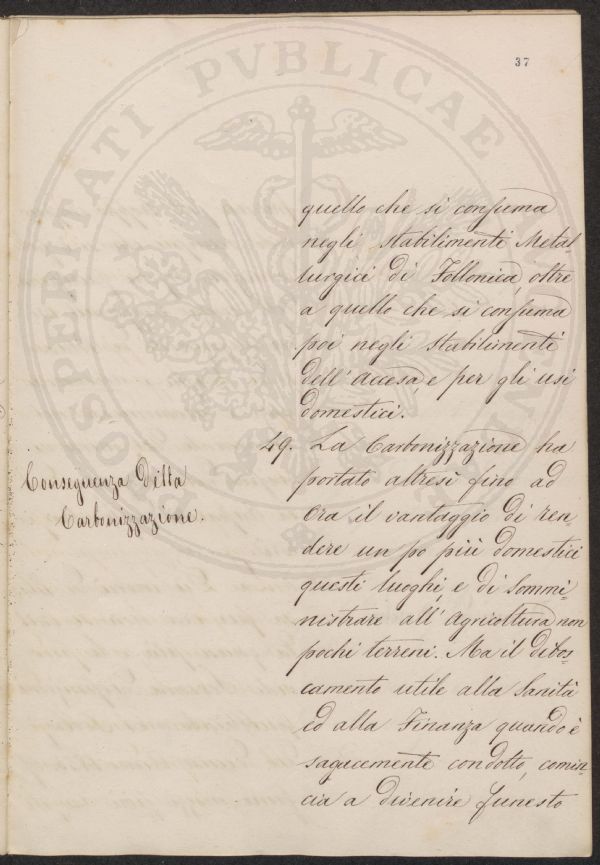 37
quello che si consuma
negli stabilimenti Metal-
lurgici di Follonica, oltre
a quello che si consuma
poi negli stabilimenti
dell'Accesa, e per gli usi
domestici.
49. La Carbonizzazione ha
portato altresì fino ad
Ora il vantaggio di ren,
dere un po più domestici
questi luoghi, e di Sommi-
nistrare all'Agricoltura non
pochi terreni. Ma il disbos-
camento utile alla Sanità
ed alla Finanza quando è
sagacemente condotto, comin-
cia a divenire funesto
Conseguenza Della
Carbonizzazione.
PROSPERITATI PVBLICAE